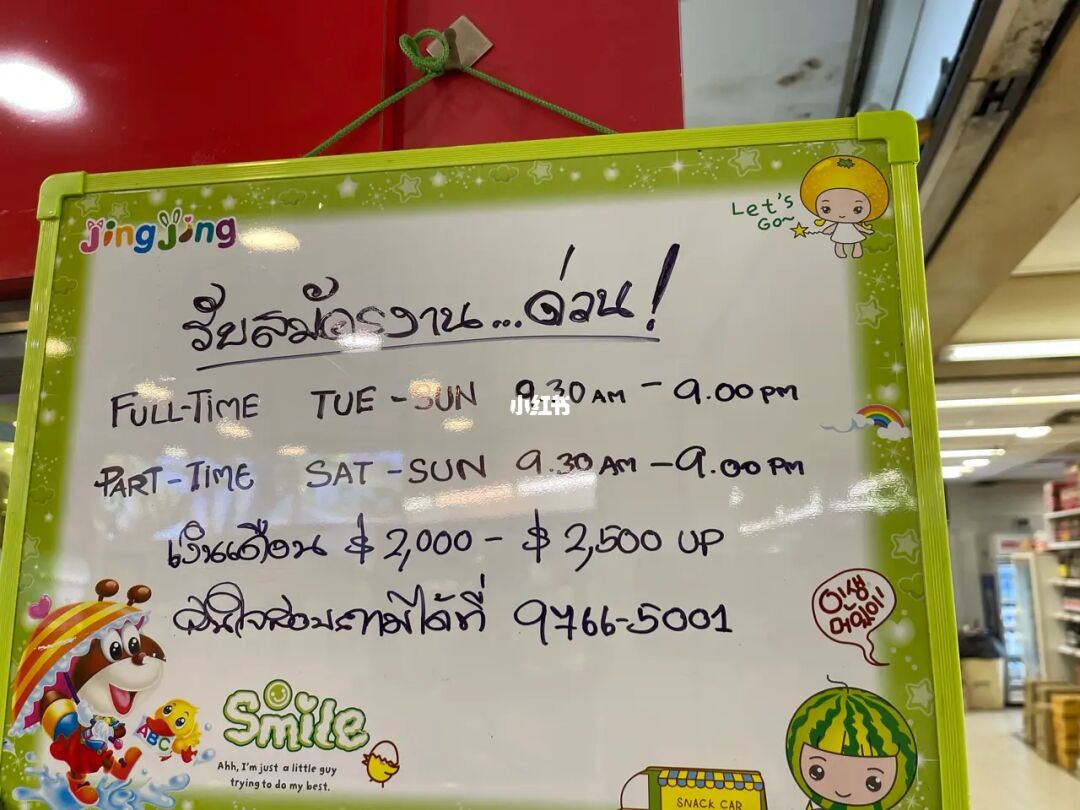 JingJing
Let's
Go~
รับสมัครงาน...ด่วน!
FULL-TIME TUE - SUN 9.30 AM - 9.00 PM
小红书
PART-TIME SAT - SUN 9.30 AM - 9.00 PM
เงินเดือน $ 2,000 - $ 2,500 UP
สนใจสอบถามได้ที่ 9766-5001
ABC
Smile
Ahh, I'm just a little guy
trying to do my best.
SNACK CAR